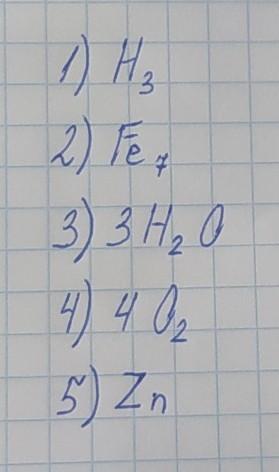 1) H₃
2) Fe₇
3) 3H₂O
4) 4O₂
5) Zn